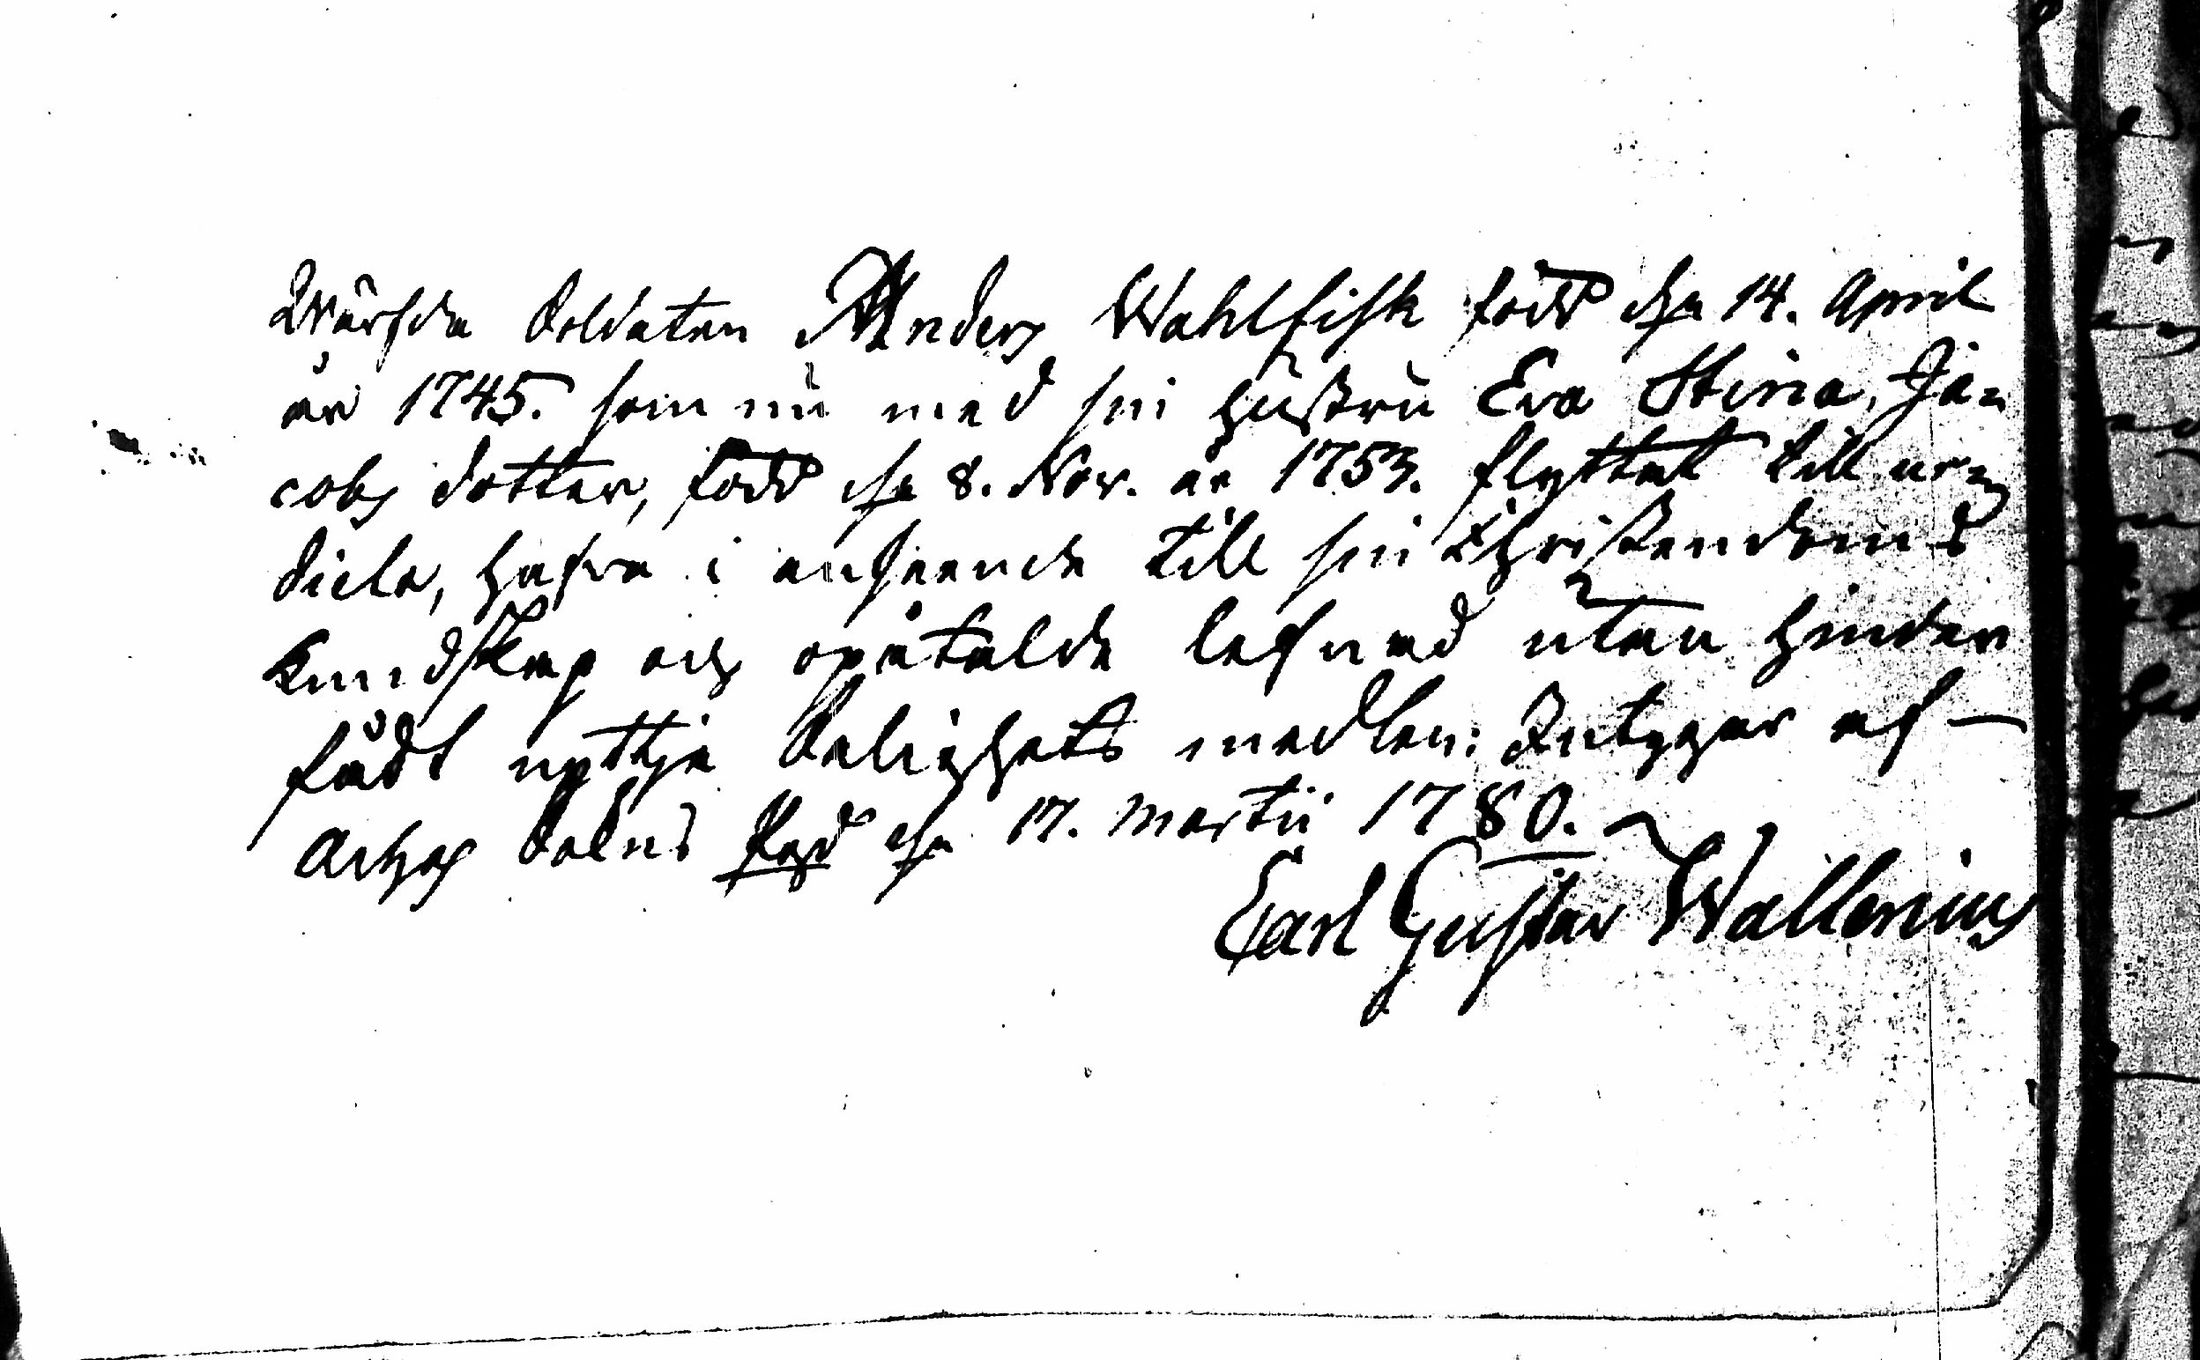 Wärfda Soldaten Anders Wahlfisk född d. 14. April
år 1745. som nu med sin hustru Eva Stina, Ja=
cobs dotter, född d. 8. Nov. år 1753. flyttat till
hafva i anseende till sin Christendoms
Kundskap och opåtalde lefnad utan hinder
fådt nyttja Salighets medlen: Intygar af
d. 17. Martii 1780.
Carl Gustav Wallerius